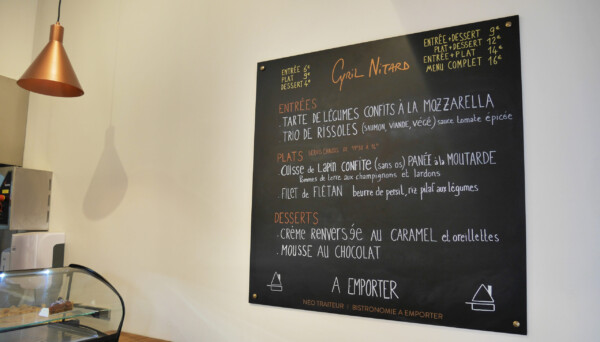 ENTRÉE 6€
PLAT 9€
DESSERT 4€
Cyril Nitard
ENTRÉE+DESSERT 9€
PLAT+DESSERT 12€
ENTRÉE+PLAT 14€
MENU COMPLET 16€
ENTRÉES
- TARTE DE LÉGUMES CONFITS À LA MOZZARELLA
- TRIO DE RISSOLES (SAUMON, VIANDE, VÉGÉ) sauce tomate épicée
PLATS
- CUISSE de LAPIN CONFITE (sans os) PANÉE à la MOUTARDE
Pommes de terre aux champignons et lardons
- FILET de FLÉTAN beurre de persil, riz pilaf aux légumes
DESSERTS
- CRÈME RENVERSÉE AU CARAMEL et oreillettes
- MOUSSE AU CHOCOLAT
A EMPORTER
NÉO TRAITEUR | BISTRONOMIE A EMPORTER